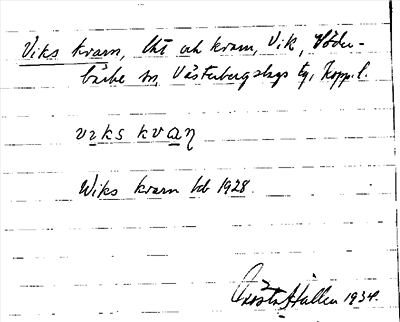 Viks kvarn, lht och kvarn, Vik, Söder-
bärke sn, Västerbergslags tg, Kopp. l.
viks kvaɳ
Wiks kvarn bd 1928.
Gösta Hallén 1934.